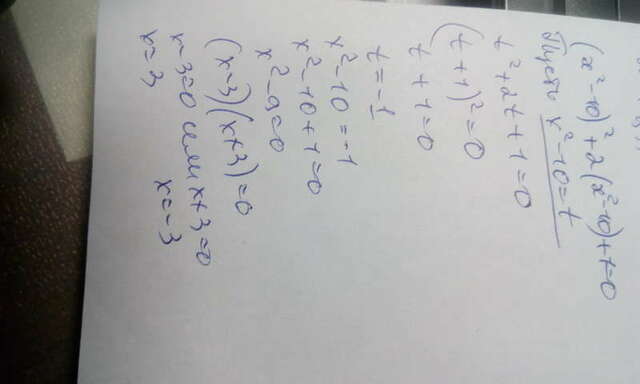 (x²-10)²+2(x²-10)+1=0
Пусть x²-10=t
t²+2t+1=0
(t+1)²=0
t+1=0
t=-1
x²-10=-1
x²-10+1=0
x²-9=0
(x-3)(x+3)=0
x-3=0 или x+3=0
x=3 x=-3